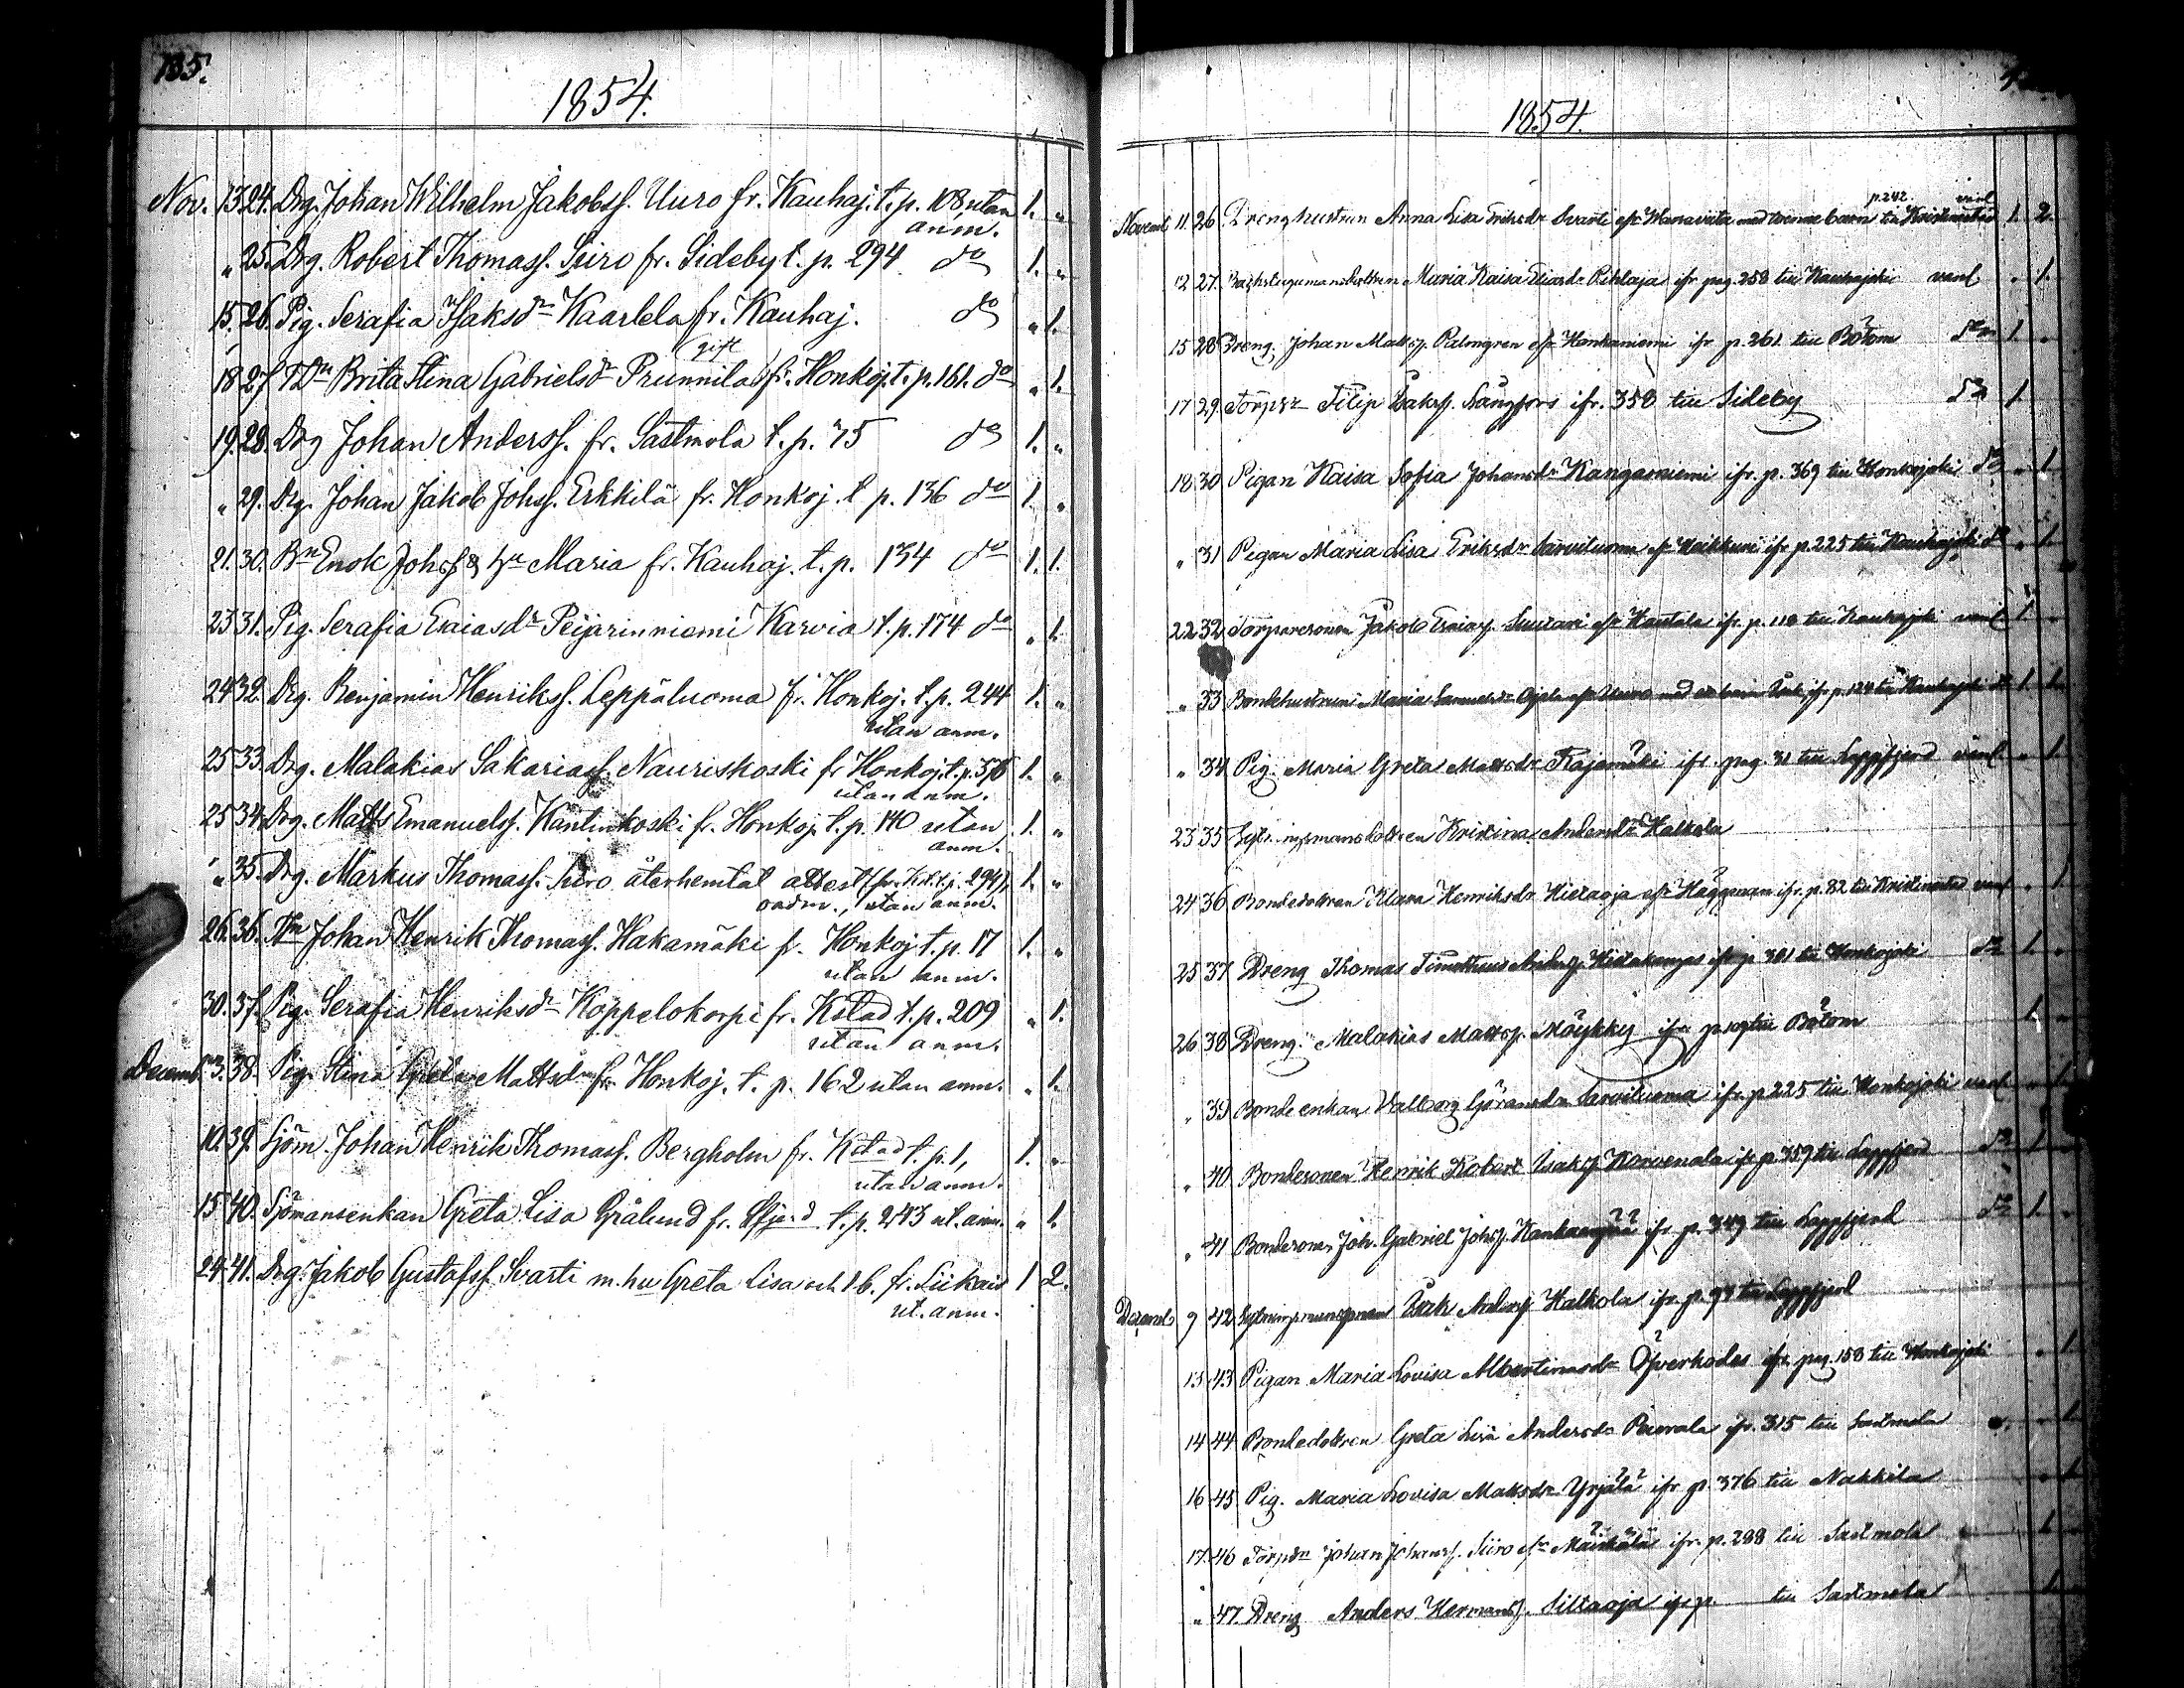 735.
1854.
Nov. 13. 24. Drg. Johan Wilhelm Jakobss. Uuro fr. Kauhaj. t. p. 108, utan 1. "
anm.
" 25. Drg. Robert Thomass. Siiro fr. Sideby t. p. 294 do 1. "
15. 26. Pig. Serafia Isaksdr Kaarlela fr. Kauhaj. do " 1.
gift
18. 27. TDn Brita Stina Gabrielsdr Prunnila fr. Honkoj. t. p. 161. do " 1.
19. 28. Drg Johan Anderss. fr. Sastmola t. p. 75 do 1. "
" 29. Drg. Johan Jakob Johss. Erkkilä fr. Honkoj. t p. 136 do 1. "
21. 30. Bn Enok Johss & hu Maria fr. Kauhaj. t. p. 134 do 1. 1.
23 31. Pig. Serafia Esaiasdr Peijarinniemi Karvia t. p. 174 do " 1.
24 32. Drg. Benjamin Henrikss. Leppäluoma fr. Honkoj. t. p. 244 1. "
utan anm.
25 33. Drg. Malakias Sakariass. Nauriskoski fr Honkoj. t. p. 376 1. "
utan anm.
25 34. Drg. Matts Emanuelss. Kantinkoski fr. Honkoj. t. p. 140 utan 1. "
anm.
" 35. Drg. Markus Thomass. Siiro återhemtat attest (fr. Kst. t. p. 294), 1. "
oadm., utan anm.
26. 36. Johan Henrik Thomass. Hakamäki fr. Honkoj. t. p. 17 1. "
utan anm.
30. 37. Pig. Serafia Henriksdr Koppelokorpi fr. Kstad t. p. 209 " 1.
utan anm.
Decemb. 3. 38. Pig. Stina Greta Mattsdr fr. Honkoj. t. p. 162 utan anm. " 1.
10. 39. Sjöm. Johan Henrik Thomass. Bergholm fr. Kstad t. p. 1, 1. "
utan anm.
15 40. Sjömansenkan Greta Lisa Grålund fr. Lfjerd t. p. 243 ut. anm. " 1.
24 41. Drg. Jakob Gustafss. Svarti m. hu Greta Lisa och 1 b. fr. 1 2.
ut. anm.
1854.
p. 242 vanl
Novemb 11. 26 Drenghustrun Anna Lisa Eriksdr Svarti med tvenne barn till Kristinestad 1. 2.
12 27. Maria Kaisa Eliasdr Pihlaja ifr pag. 258 till Kauhajoki vanl " 1.
15 28 Dreng. Johan Mattss. Palmgren efr Kankaniemi ifr p. 261. till Bötom do 1. "
17 29. Torpsn Filip Isakss. Långfors ifr. 358 till Sideby do 1.
18 30 Pigan Kaisa Sofia Johansdr Kangasniemi ifr. p. 369 till Honkojoki do " 1.
" 31 Pigan Maria Lisa Eriksdr Sarviluoma efr Haikkuri ifr p. 225 till Kauhajoki do " 1.
22 32. Torparesonen Jakob Esaiass. Suutari efr Hautala ifr. p. 118 till Kauhajoki vanl 1. "
" 33 Bondehustrun Maria Samuelsdr Ojala efr Uuro med ifr p. 124 till Kauhajoki do 1. 1.
" 34 Pig. Maria Greta Mattsdr Rajamäki ifr. pag. 31 till Lappfjerd vanl. " 1.
23 35 Kristina Andersdr Halkola
24 36 Bondedottren Klara Henriksdr Hietaoja efr Häggman ifr. p. 82 till Kristinestad vanl " 1.
25 37. Dreng Thomas Timotheus Anderss. Hietakangas ifr. p. 381 till Honkojoki do 1. "
26 38 Dreng. Malakias Mattss. Möykky ifr till Bötom 1. "
" 39 Bonde enkan Valborg Göransdr Sarviluoma ifr. p. 225 till Honkojoki vanl " 1.
" 40 Bondesonen Henrik Robert Isakss. Korvenala ifr. p. 359 till Lappfjerd do 1. "
" 41 Bondesonen Joh. Gabriel Johss. ifr. p. 349 till Lappfjerd do 1. "
Decemb 9 42 Isak Anderss. Halkola ifr. p. 93 till Lappfjerd
13 43 Pigan Maria Lovisa Albertinasdr Öfverhodas ifr. pag. 158 till Honkojoki " 1.
14 44 Bondedottren Greta Lisa Andersdr Pärvala ifr. 315 till Sastmola " 1.
16 45 Pig. Maria Lovisa Mattsdr Yrjälä ifr p. 376 till Nakkila " 1.
17. 46 Torpsn Johan Johanss. Siiro efr ifr. p. 288 till Sastmola 1.
" 47. Dreng Anders Hermanss. Siltaoja ifr p. till Sastmola 1.